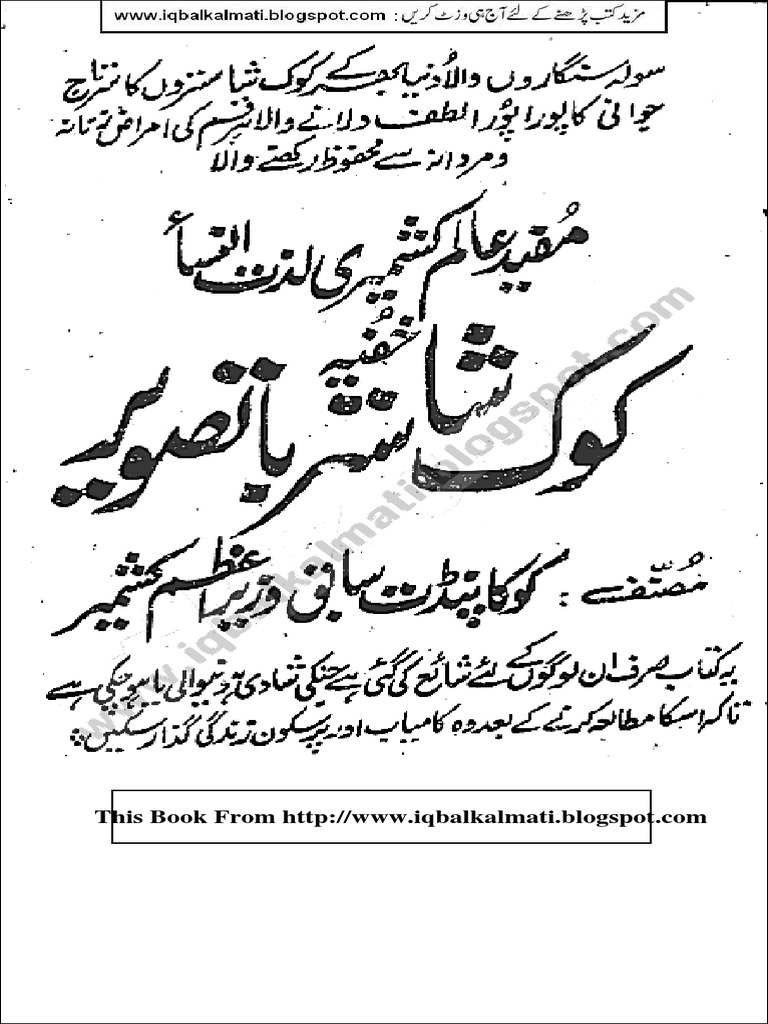 مزید کتب پڑھنے کے لئے آج ہی وزٹ کریں : www.iqbalkalmati.blogspot.com
سولہ سنگاروں والا دنیا بھر کے کوک شاستروں کا سرتاج
جوانی کا پورا پورا لطف دلانے والا ہر قسم کی امراض زنانہ
و مردانہ سے محفوظ رکھنے والا
مُفید عالم کشمیری لذت النسأ
خُفیہ
کوک شاستر باتصویر
مُصنّف : کوکا پنڈت سابق وزیر اعظم کشمیر
یہ کتاب صرف ان لوگوں کے لئے شائع کی گئی ہے جنکی شادی ہونیوالی یا ہو چکی ہے
تاکہ اسکا مطالعہ کرنے کے بعد وہ کامیاب اور پرسکون زندگی گذار سکیں
www.iqbalkalmati.blogspot.com
This Book From http://www.iqbalkalmati.blogspot.com